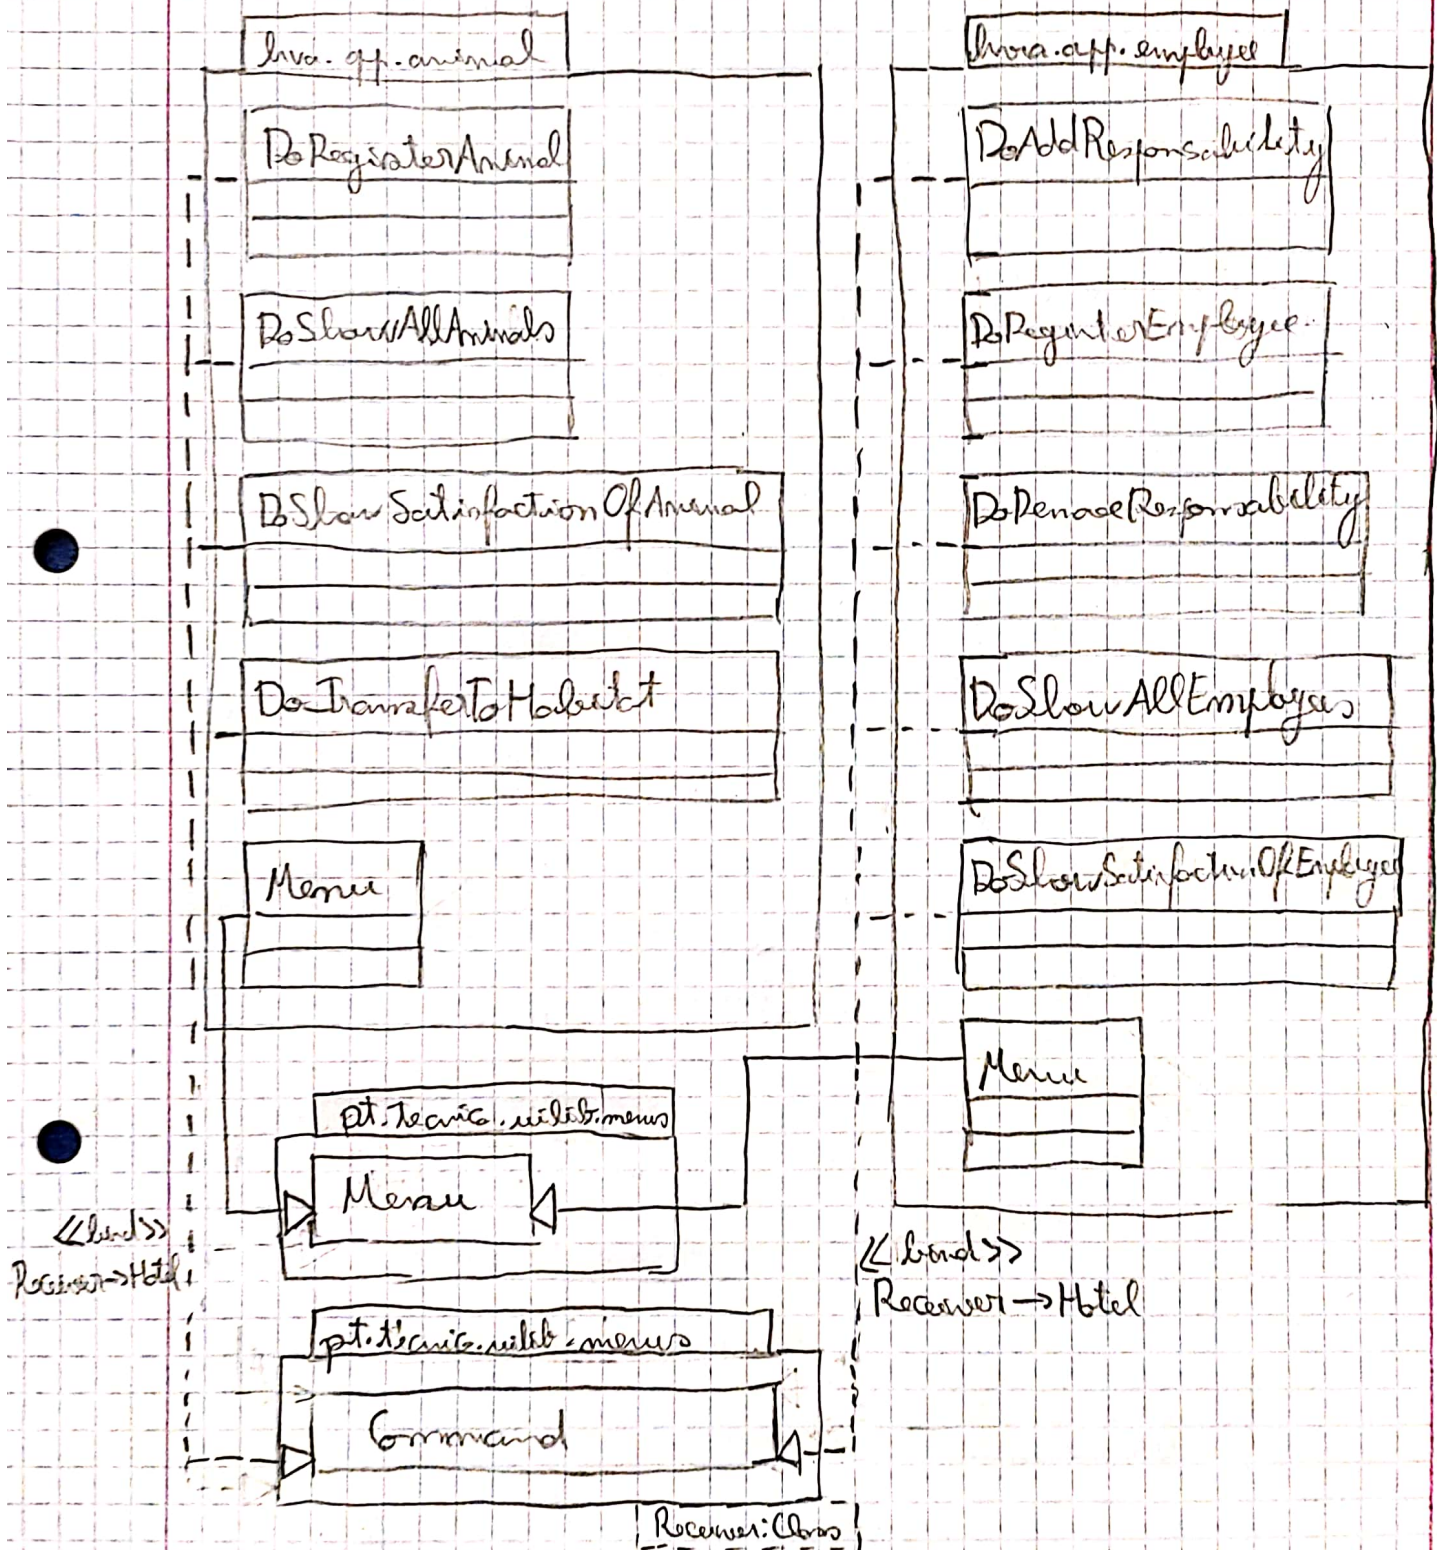 hva.app.animal
DoRegisterAnimal
DoShowAllAnimals
DoShowSatisfactionOfAnimal
DoTransferToHabitat
Menu
hva.app.employee
DoAddResponsability
DoRegisterEmployee
DoRemoveResponsability
DoShowAllEmployees
DoShowSatisfactionOfEmployee
Menu
pt.tecnico.uilib.menus
Menu
<<bind>>
Receiver->Hotel
<<bind>>
Receiver->Hotel
pt.técnico.uilib.menus
Command
Receiver:Class